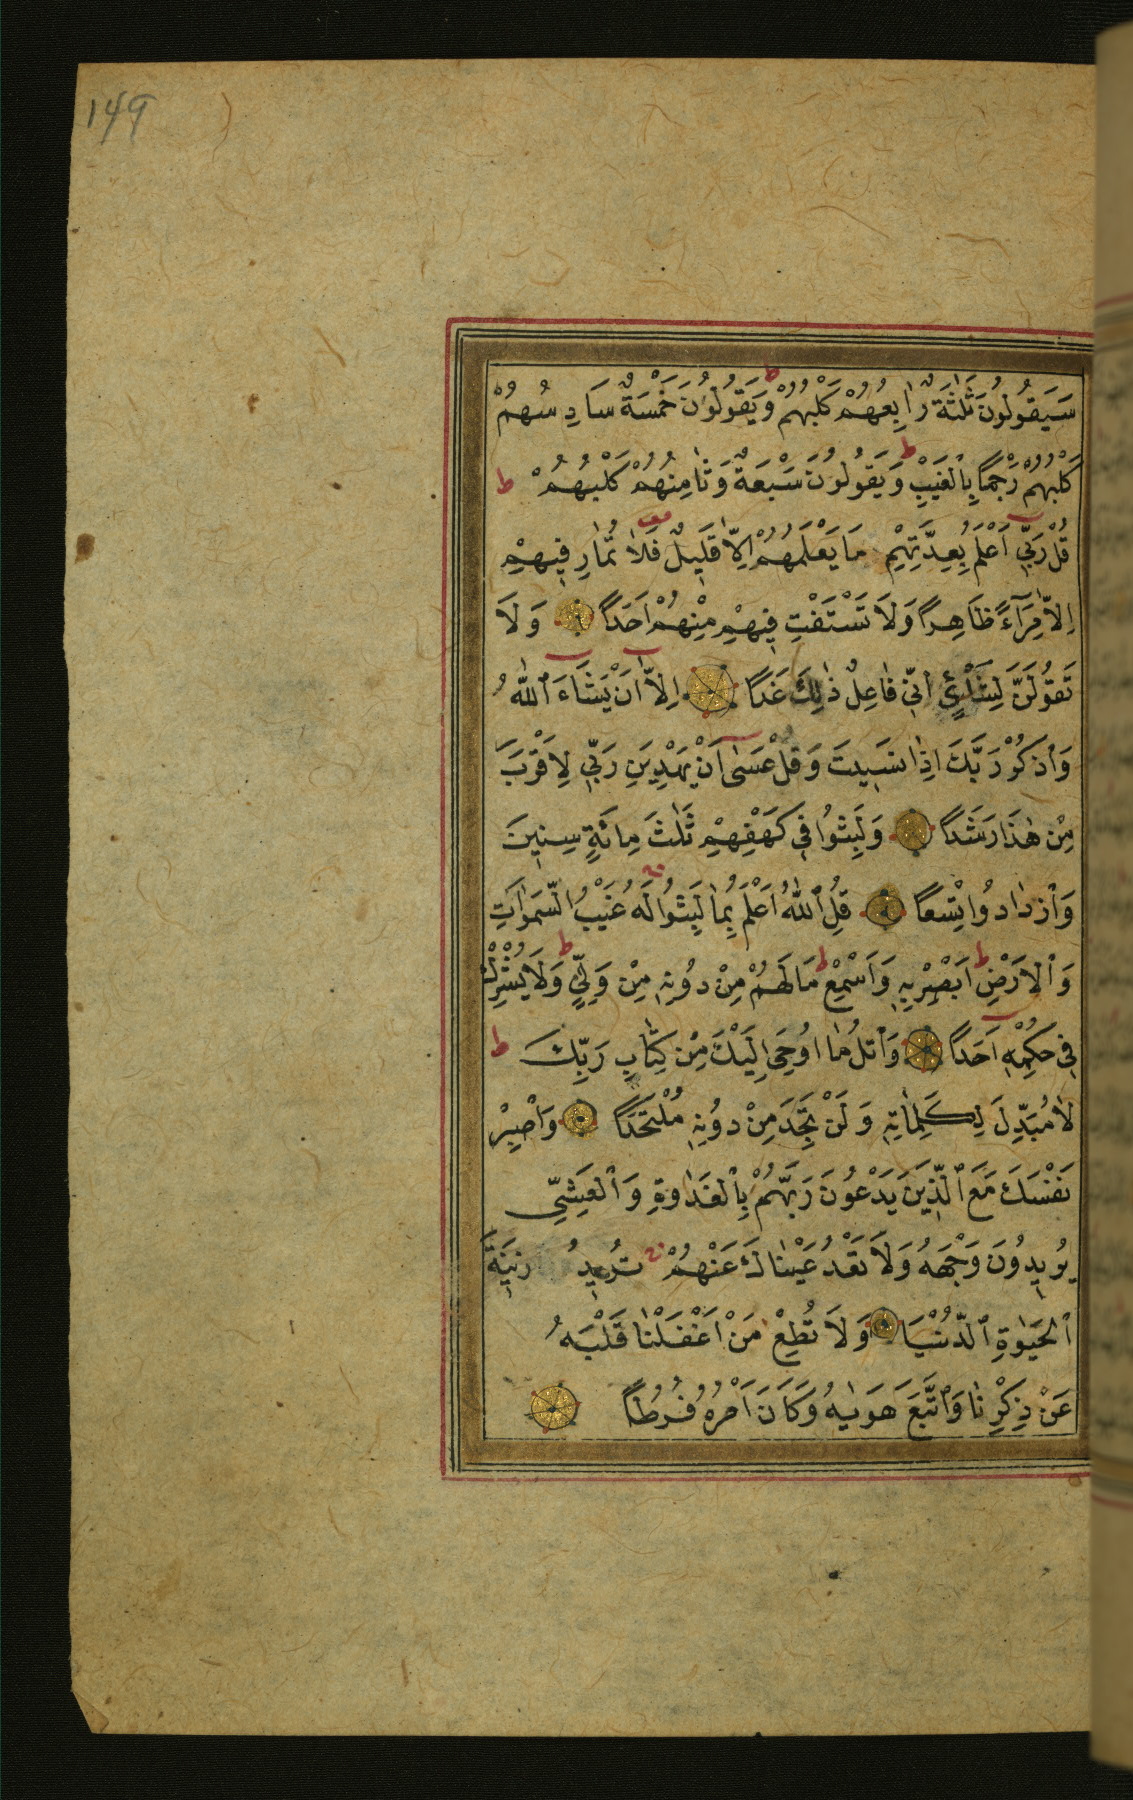 149
سَيَقُولُونَ ثَلٰثَةٌ رَابِعُهُمْ كَلْبُهُمْ ط وَيَقُولُونَ خَمْسَةٌ سَادِسُهُمْ
كَلْبُهُمْ رَجْمًا بِالْغَيْبِ ط وَيَقُولُونَ سَبْعَةٌ وَثَامِنُهُمْ كَلْبُهُمْ ط
قُلْ رَبِّى اَعْلَمُ بِعِدَّتِهِمْ مَا يَعْلَمُهُمْ اِلَّا قَلِيلٌ فَلَا تُمَارِ فِيهِمْ
اِلَّا مِرَآءً ظَاهِرًا وَلَا تَسْتَفْتِ فِيهِمْ مِنْهُمْ اَحَدًا وَلَا
تَقُولَنَّ لِشَا۟ىْءٍ اِنِّى فَاعِلٌ ذٰلِكَ غَدًا اِلَّا اَنْ يَشَاءَ ٱللّٰهُ
وَٱذْكُرْ رَبَّكَ اِذَا نَسِيتَ وَقُلْ عَسٰى اَنْ يَهْدِيَنِ رَبِّى لِاَقْرَبَ
مِنْ هٰذَا رَشَدًا وَلَبِثُوا فِى كَهْفِهِمْ ثَلٰثَ مِائَةٍ سِنِينَ
وَٱزْدَادُوا تِسْعًا قُلِ ٱللّٰهُ اَعْلَمُ بِمَا لَبِثُوا لَهُ غَيْبُ السَّمٰوَاتِ
وَٱلْاَرْضِ ط اَبْصِرْ بِهِ وَاَسْمِعْ ط مَا لَهُمْ مِنْ دُونِهِ مِنْ وَلِىٍّ ط وَلَا يُشْرِكُ
فِى حُكْمِهِ اَحَدًا وَٱتْلُ مَا اُوحِىَ اِلَيْكَ مِنْ كِتَابِ رَبِّكَ ط
لَا مُبَدِّلَ لِكَلِمَاتِهِ وَلَنْ تَجِدَ مِنْ دُونِهِ مُلْتَحَدًا وَٱصْبِرْ
نَفْسَكَ مَعَ ٱلَّذِينَ يَدْعُونَ رَبَّهُمْ بِٱلْغَدٰوةِ وَٱلْعَشِىِّ
يُرِيدُونَ وَجْهَهُ وَلَا تَعْدُ عَيْنَاكَ عَنْهُمْ تُرِيدُ زِينَةَ
ٱلْحَيٰوةِ ٱلدُّنْيَا وَلَا تُطِعْ مَنْ اَغْفَلْنَا قَلْبَهُ
عَنْ ذِكْرِنَا وَٱتَّبَعَ هَوٰيهُ وَكَانَ اَمْرُهُ فُرُطًا